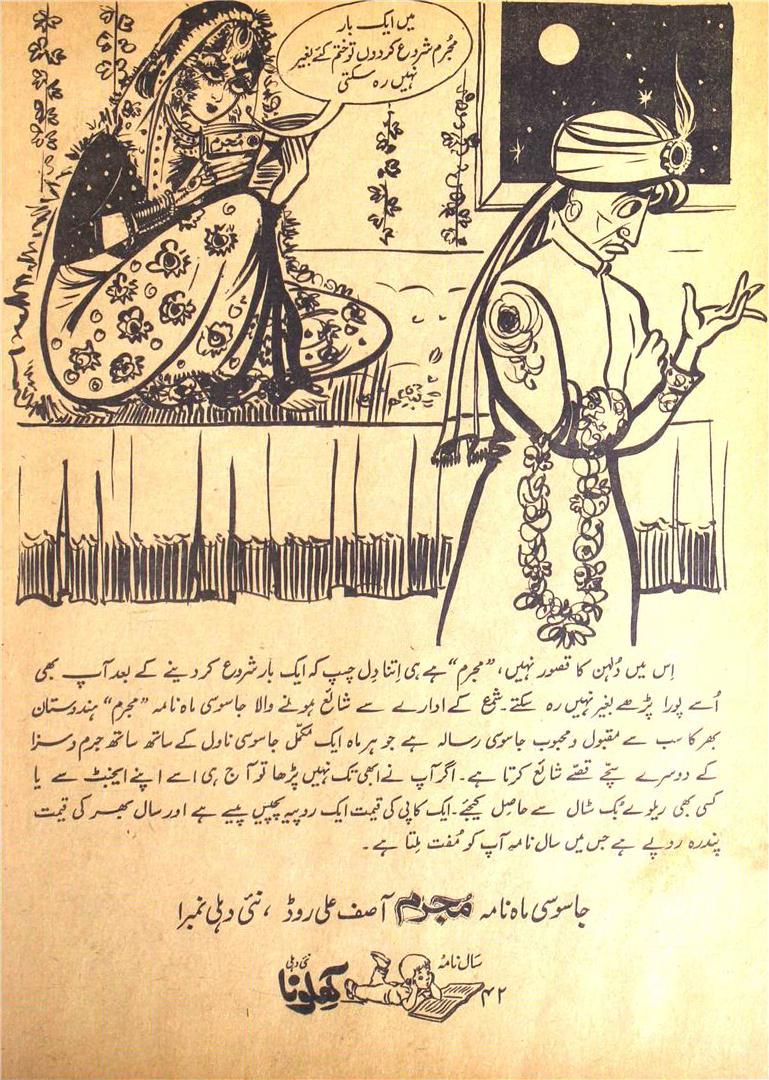 میں ایک بار
مجُرم شروع کردوں تو ختم کئے بغیر
نہیں رہ سکتی
مجرم
اِس میں دُلہن کا قصور نہیں، ”مجرم“ ہے ہی اِتنا دِل چسپ کہ ایک بار شروع کر دینے کے بعد آپ بھی
اُسے پورا پڑھے بغیر نہیں رہ سکتے۔ شمع کے ادارے سے شائع ہونے والا جاسوسی ماہ نامہ ”مجرم“ ہندوستان
بھر کا سب سے مقبول و محبوب جاسوسی رسالہ ہے جو ہر ماہ ایک مکمّل جاسوسی ناول کے ساتھ ساتھ جرم و سزا
کے دوسرے سچّے قصّے شائع کرتا ہے۔ اگر آپ نے ابھی تک نہیں پڑھا تو آج ہی اسے اپنے ایجنٹ سے یا
کسی بھی ریلوے بُک سٹال سے حاصِل کیجیے۔ ایک کاپی کی قیمت ایک روپیہ پچیس پیسے ہے اور سال بھر کی قیمت
پندرہ روپے ہے جس میں سال نامہ آپ کو مُفت مِلتا ہے۔
جاسوسی ماہ نامہ مُجرم آصف علی روڈ، نئی دہلی نمبرا
سَال نامہُ
کھِلونا نئی دہلی
۴۲